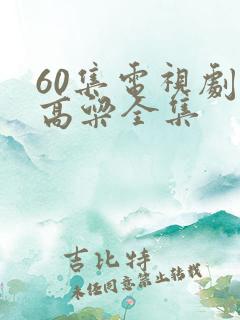 60集电視劇
高粱全集
吉比特
未经同意禁止转载